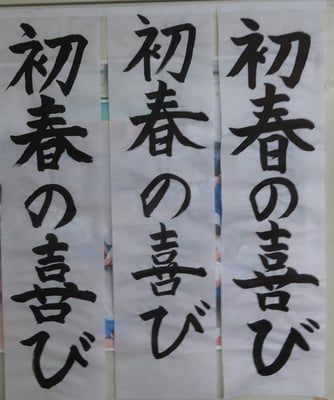 初春の喜び
初春の喜び
初春の喜び